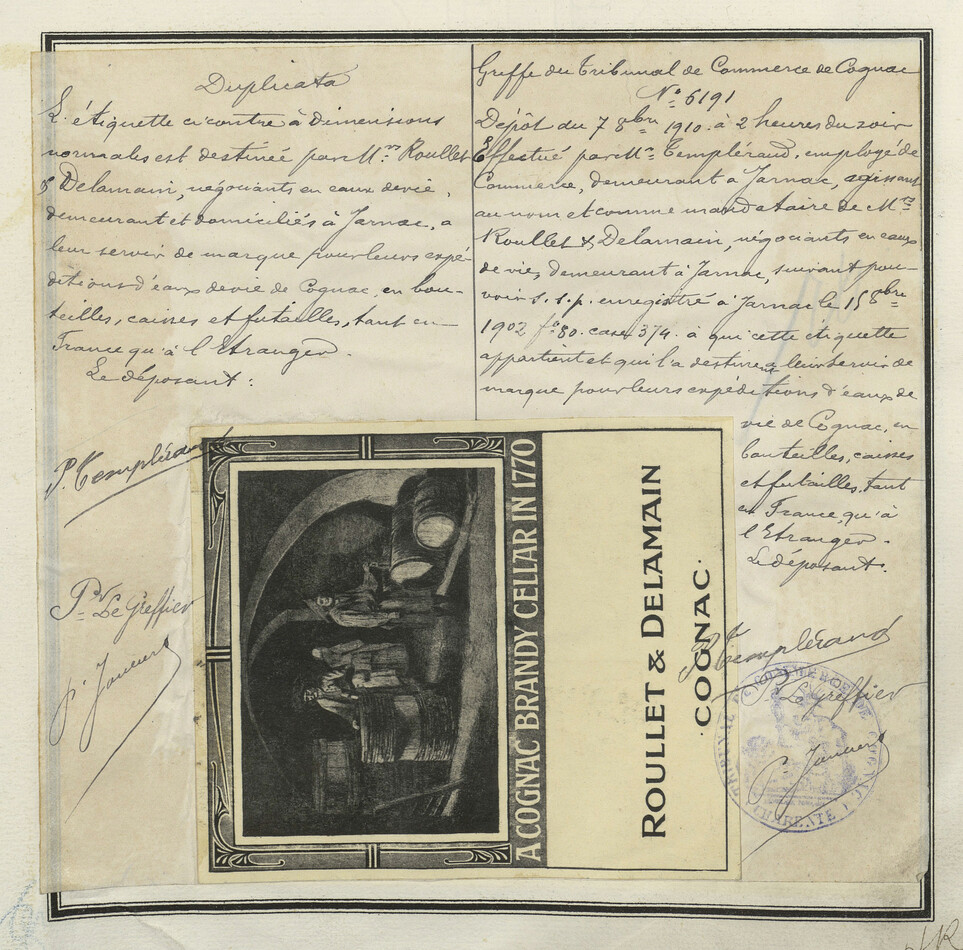 Duplicata
L'étiquette ci contre à Dimensions
normales est destinée par Mrs Roullet
& Delamain, négociants en eaux de vie,
demeurant et domiciliés à Jarnac, a
leur servir de marque pour leurs expé-
ditions d'eaux de vie de Cognac, en bou-
teilles, caisses et futailles, tant en
France qu'à l'Etranger.
Le déposant:
P. Templéraud
Pr Le Greffier
Greffe du Tribunal de Commerce de Cognac
No 6191
Dépôt du 7 8bre 1910 à 2 heures du soir
Effectué par Mr Templéraud, employé de
Commerce, demeurant à Jarnac, agissant
au nom et comme mandataire de Mrs
Roullet & Delamain, négociants en eaux
de vie, demeurant à Jarnac, suivant pou-
voir s. s. p. enregistré à Jarnac le 15 8bre
1902 fo 80. case 374. à qui cette étiquette
appartient et qui l'a destinent a leur servir de
marque pour leurs expéditions d'eaux de
vie de Cognac, en
bouteilles, caisses
et futailles, tant
en France, qu'à
l'Etranger.
Le déposant.
Templéraud
Pr Le Greffier
A COGNAC BRANDY CELLAR IN 1770
ROULLET & DELAMAIN
·COGNAC·
TRIBUNAL DE COMMERCE DE COGNAC
CHARENTE